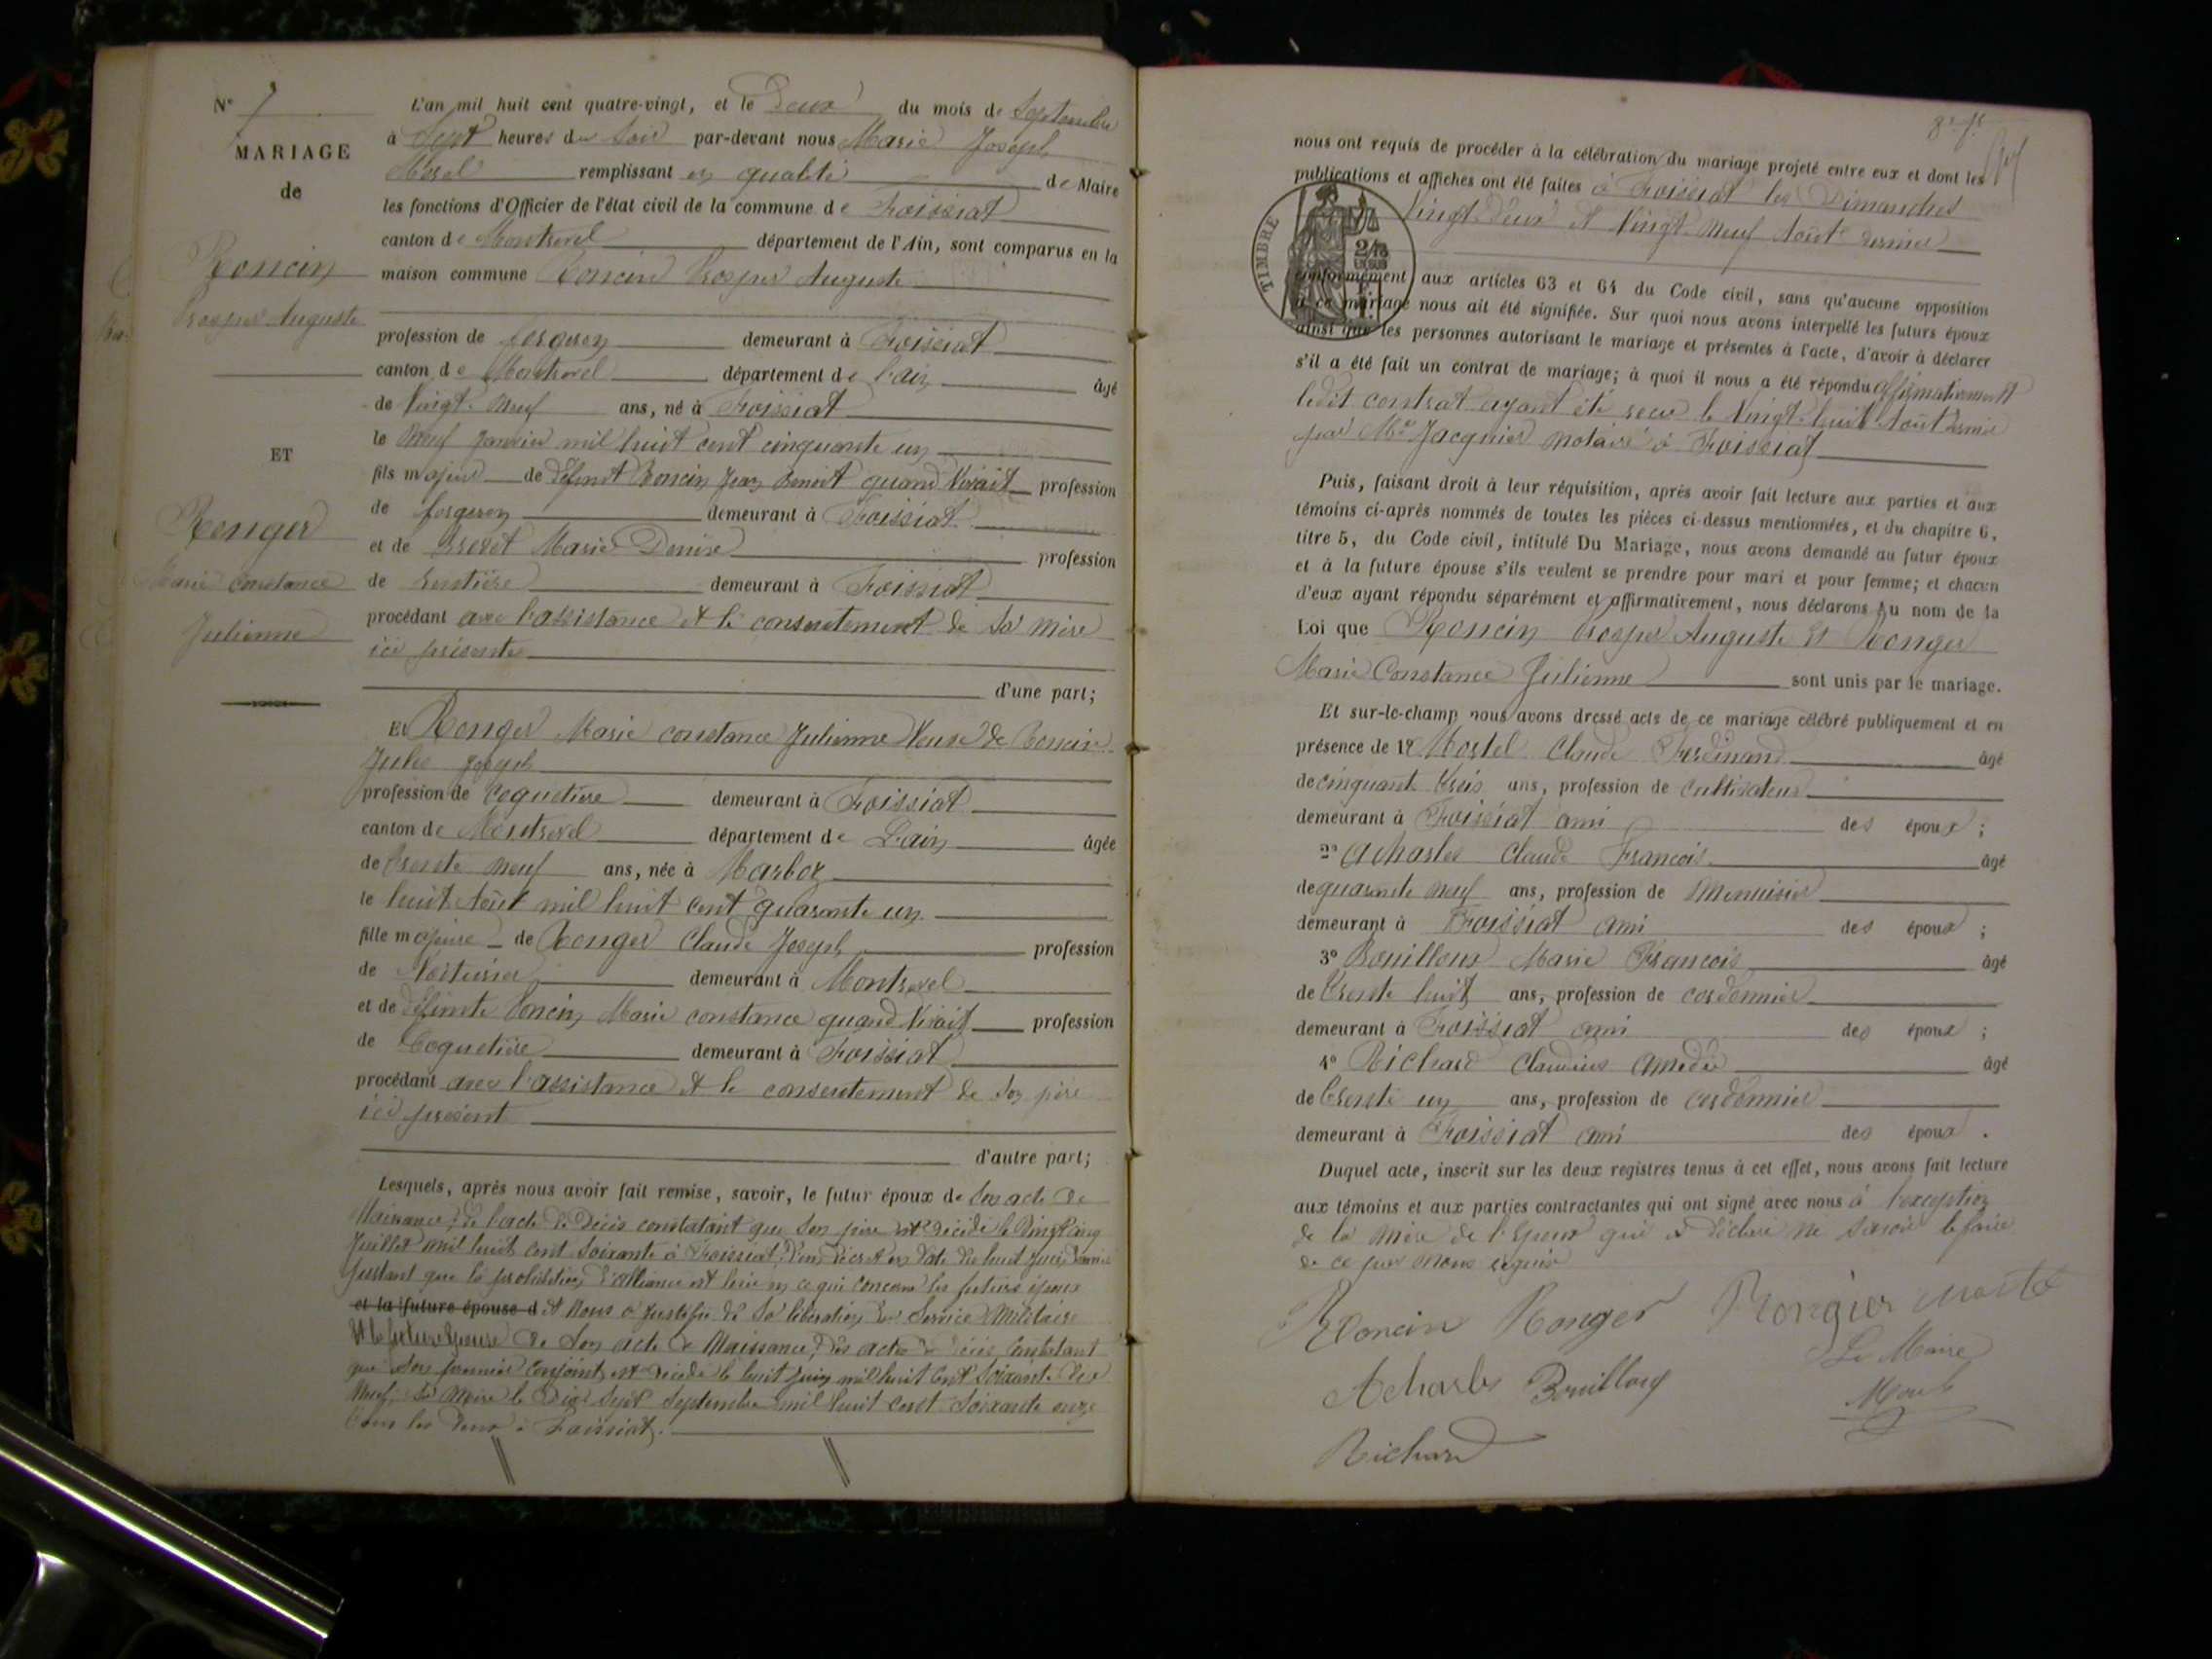 N° 7
MARIAGE
de
Roncin
Prosper Auguste
ET
Ronger
Marie Constance
Julienne
L'an mil huit cent quatre-vingt, et le Deux du mois de Septembre
à Sept heures du Soir par-devant nous Marie Joseph
Morel remplissant en qualité de Maire
les fonctions d'Officier de l'état civil de la commune de Foissiat
canton de Montrevel département de l'Ain, sont comparus en la
maison commune Roncin Prosper Auguste
profession de forgeron demeurant à Foissiat
canton de Montrevel département de l'ain âgé
de Vingt-neuf ans, né à Foissiat
le Neuf Janvier mil huit cent cinquante un
fils majeur de défunt Roncin Jean Benoit quand Vivait profession
de forgeron demeurant à Foissiat
et de Brevet Marie Denise profession
de rentière demeurant à Foissiat
procédant avec l'assistance et le consentement de sa mère
ici présente
d'une part;
Et Ronger Marie constance Julienne Veuve de Roncin
Jules Joseph
profession de Coquetière demeurant à Foissiat
canton de Montrevel département de L'ain âgée
de trente neuf ans, née à Marboz
le huit Août mil huit cent quarante un
fille majeure de Ronger Claude Joseph profession
de Voiturier demeurant à Montrevel
et de défunte Poncin Marie constance quand Vivait profession
de Coquetière demeurant à Foissiat
procédant avec l'assistance et le consentement de son père
ici présent
d'autre part;
Lesquels, après nous avoir fait remise, savoir, le futur époux de Son acte de
Naissance, de l'acte de Décès constatant que son père est décédé le Vingt cinq
Juillet mil huit cent soixante à Foissiat, d'un décret en date du huit Juin dernier
Justant que la prohibition d'alliance est levée en ce qui concerne les futurs époux
et la future épouse d et Nous a justifié de sa libération du Service Militaire
Et la future Epouse de Son acte de Naissance, des actes de décès Constatant
que Son premier conjoint est décédé le huit Juin mil huit cent Soixante dix
Neuf, Sa Mère le Dix Sept Septembre mil huit cent Soixante onze
tous les deux à Foissiat.
nous ont requis de procéder à la célébration du mariage projeté entre eux et dont les
publications et affiches ont été faites à Foissiat les Dimanches
Vingt-Deux et Vingt-Neuf Août dernier
TIMBRE
conformément aux articles 63 et 64 du Code civil, sans qu'aucune opposition
à ce mariage nous ait été signifiée. Sur quoi nous avons interpellé les futurs époux
ainsi que les personnes autorisant le mariage et présentes à l'acte, d'avoir à déclarer
s'il a été fait un contrat de mariage; à quoi il nous a été répondu affirmativement
ledit contrat ayant été reçu le Vingt-huit Août dernier
par Me Jacquier notaire à Foissiat
Puis, faisant droit à leur réquisition, après avoir fait lecture aux parties et aux
témoins ci-après nommés de toutes les pièces ci-dessus mentionnées, et du chapitre 6,
titre 5, du Code civil, intitulé Du Mariage, nous avons demandé au futur époux
et à la future épouse s'ils veulent se prendre pour mari et pour femme; et chacun
d'eux ayant répondu séparément et affirmativement, nous déclarons au nom de la
Loi que Roncin Prosper Auguste Et Ronger
Marie Constance Julienne sont unis par le mariage.
Et sur-le-champ nous avons dressé acte de ce mariage célébré publiquement et en
présence de 1° Mortel Claude Ferdinand âgé
de cinquante trois ans, profession de Cultivateur
demeurant à Foissiat ami des époux ;
2° Acharles Claude François âgé
de quarante neuf ans, profession de Menuisier
demeurant à Foissiat ami des époux ;
3° Bouilloux Marie François âgé
de trente huit ans, profession de cordonnier
demeurant à Foissiat ami des époux ;
4° Richard Claudius Amédée âgé
de trente un ans, profession de cordonnier
demeurant à Foissiat ami des époux .
Duquel acte, inscrit sur les deux registres tenus à cet effet, nous avons fait lecture
aux témoins et aux parties contractantes qui ont signé avec nous à l'exception
de la mère de l'Epoux qui a déclaré ne savoir le faire
de ce par nous requise
Roncin Ronger Rongier
Acharles Bouilloux Le Maire
Richard Morel